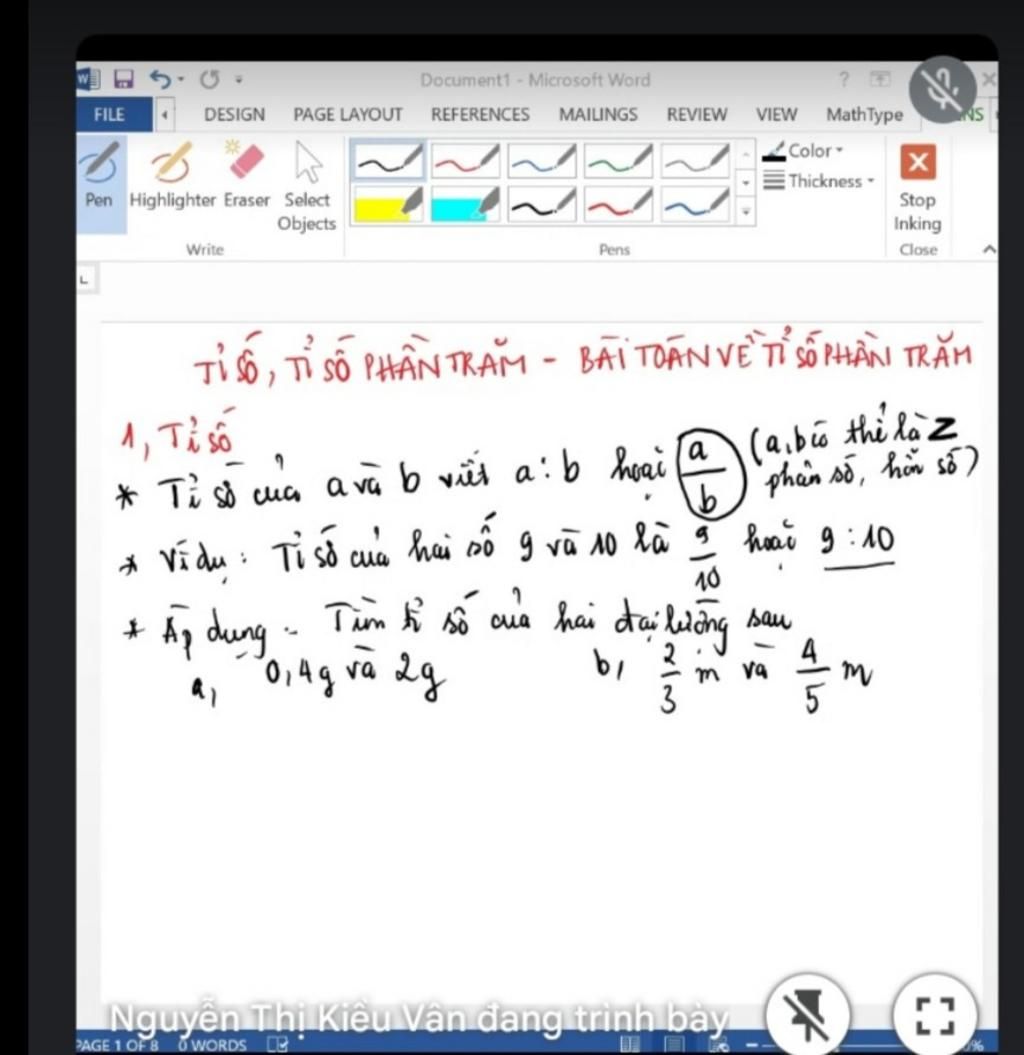 Document1 - Microsoft Word
FILE DESIGN PAGE LAYOUT REFERENCES MAILINGS REVIEW VIEW MathType NS
Color
Thickness
Pen Highlighter Eraser Select Objects
Stop Inking
Write Pens Close
TỈ SỐ, TỈ SỐ PHẦN TRĂM - BÀI TOÁN VỀ TỈ SỐ PHẦN TRĂM
1, Tỉ số
* Tỉ số của a và b viết a : b hoặc a/b (a, b có thể là Z phân số, hỗn số)
* Ví dụ : Tỉ số của hai số 9 và 10 là 9/10 hoặc 9 : 10
* Áp dụng : Tìm tỉ số của hai đại lượng sau
a, 0,4g và 2g b, 2/3 m và 4/5 m
Nguyễn Thị Kiều Vân đang trình bày
PAGE 1 OF 8 0 WORDS